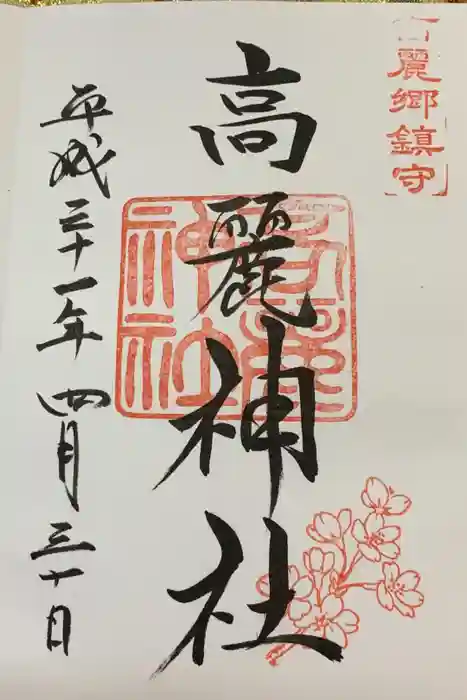 高麗郷鎮守
高麗神社
高麗神社
平成三十一年四月三十日